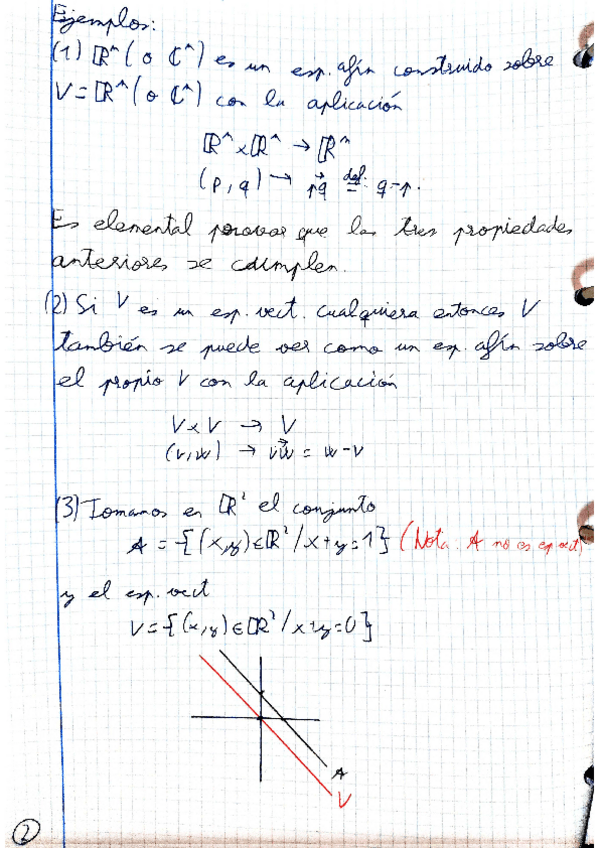 Ejemplos:
(1) ℝⁿ (o ℂⁿ) es un esp. afín construido sobre
V = ℝⁿ (o ℂⁿ) con la aplicación
ℝⁿ × ℝⁿ → ℝⁿ
(p, q) → p⃗q ≝ q-p.
Es elemental provar que las tres propiedades
anteriores se cumplen.
(2) Si V es un esp. vect. cualquiera entonces V
también se puede ver como un esp. afín sobre
el propio V con la aplicación
V × V → V
(v, w) → v⃗w = w-v
(3) Tomamos en ℝ² el conjunto
A = {(x,y) ∈ ℝ² / x+y=1} (Nota. A no es esp vect)
y el esp. vect
V = {(x,y) ∈ ℝ² / x+y=0}
A
V
2